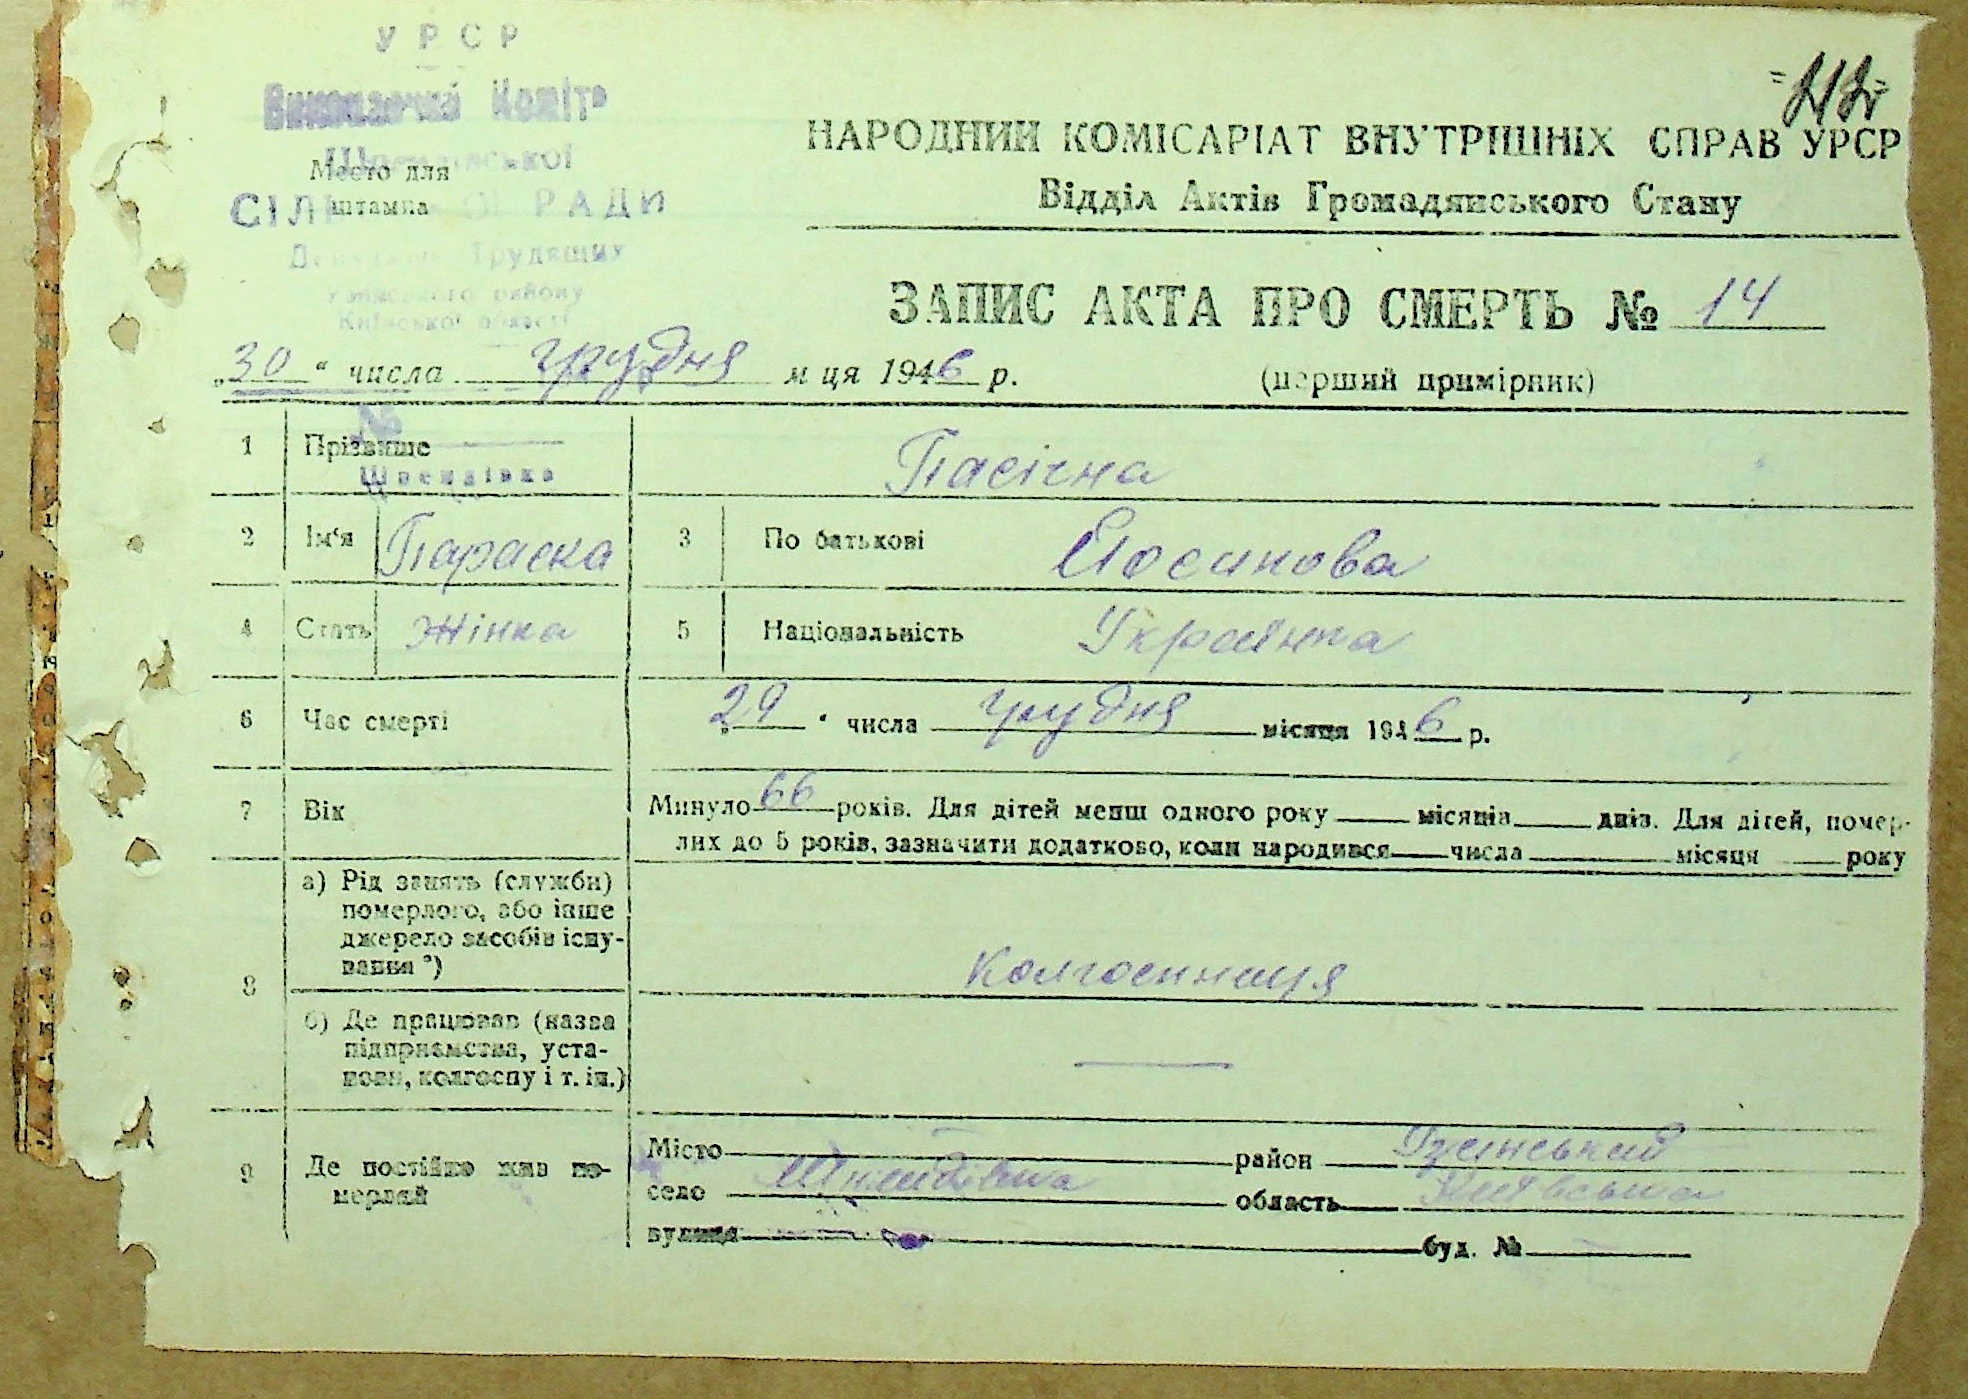 УРСР
Виконавчий Коміт
Место для
штампа
СІЛ РАДИ
Трудящих
району
Київської області
НАРОДНИЙ КОМІСАРІАТ ВНУТРІШНІХ СПРАВ УРСР
Відділ Актів Громадянського Стану
ЗАПИС АКТА ПРО СМЕРТЬ № 14
„30“ числа грудня м ця 1946 р.
(перший примірник)
№
1 Прізвище Пасічна
2 Ім'я Параска 3 По батькові Йосипова
4 Стать Жінка 5 Національність Українка
6 Час смерті „29“ числа грудня місяця 1946 р.
7 Вік Минуло 66 років. Для дітей менш одного року місяців днів. Для дітей, помер-
лих до 5 років, зазначити додатково, коли народився числа місяця року
8 а) Рід занять (служби)
померлого, або інше
джерело засобів існу-
вання *)
Колгоспниця
б) Де працював (назва
підприємства, уста-
нови, колгоспу і т. ін.)
9 Де постійно жив по-
мерлий
Місто район Узинський
село область Київська
вулиця буд. №